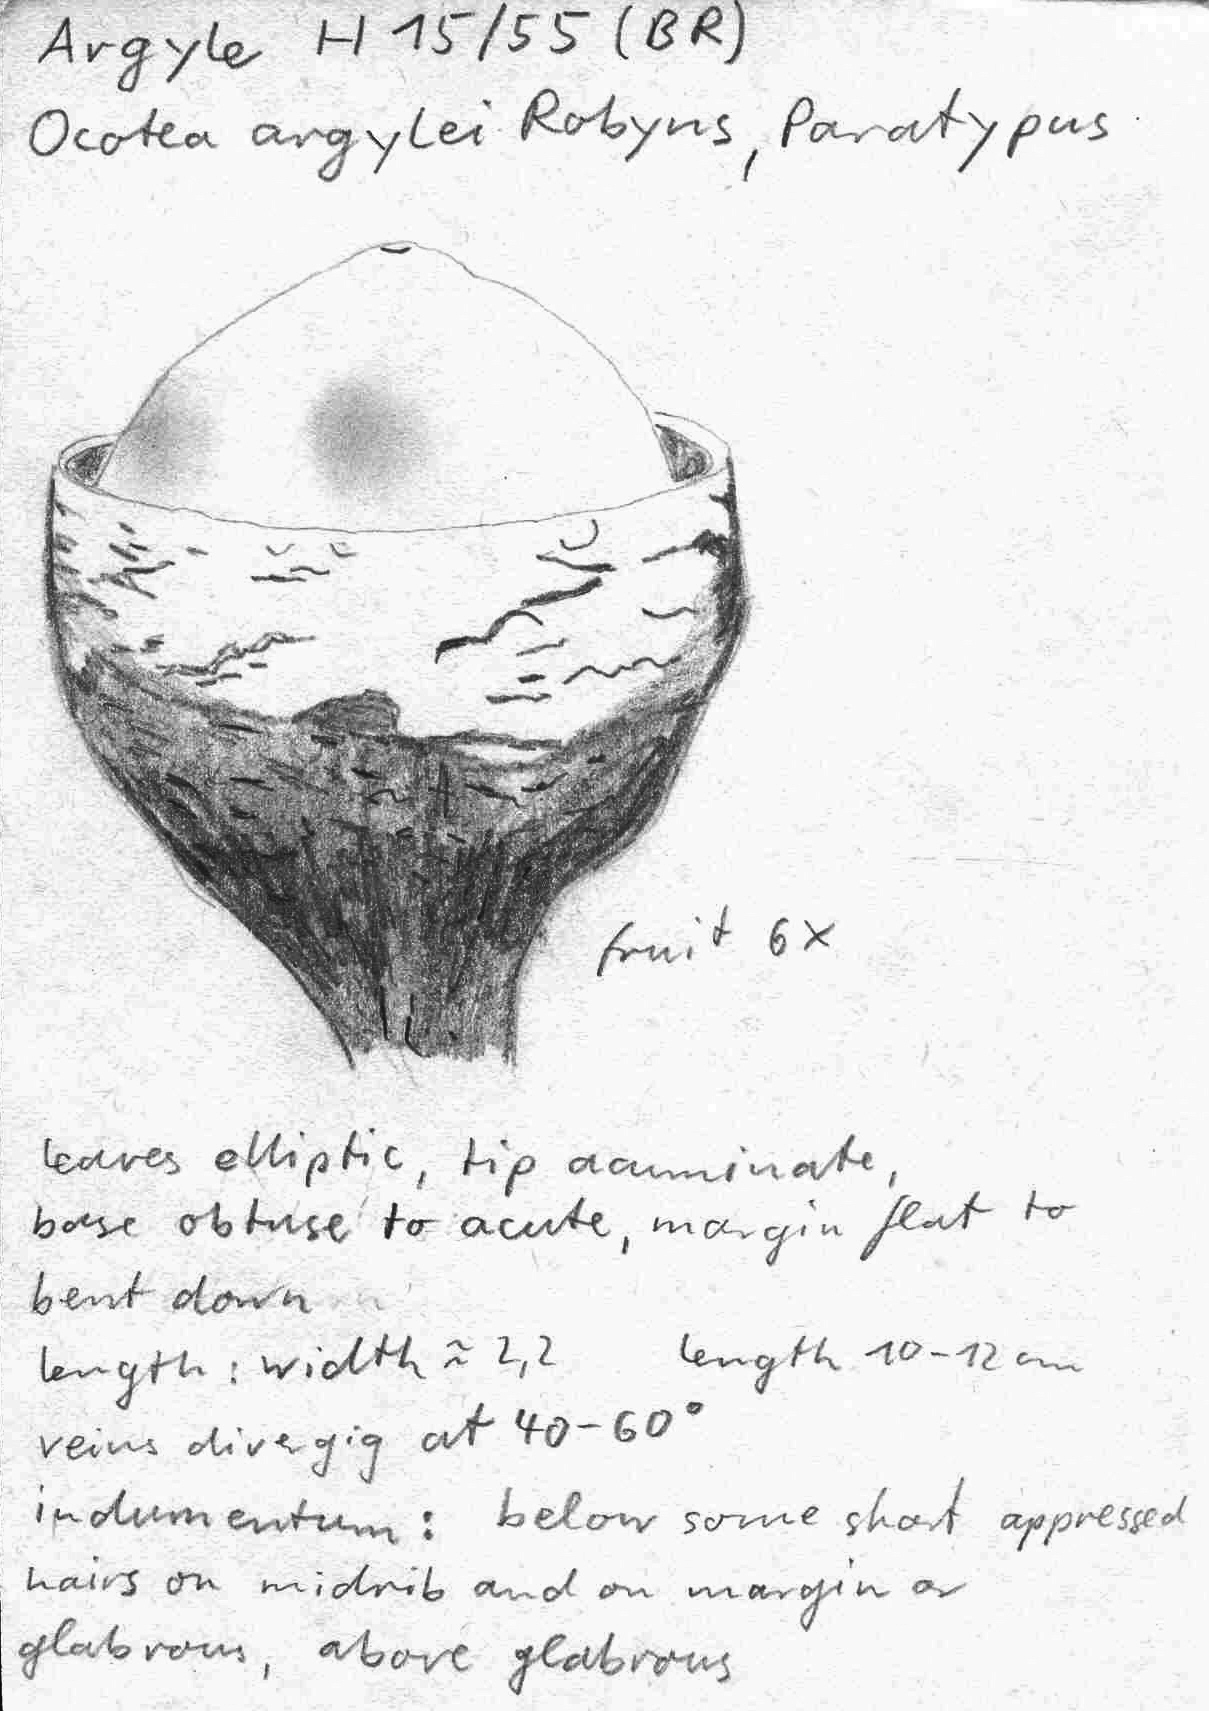 Argyle H 15/55 (BR)
Ocotea argylei Robyns, Paratypus
fruit 6x
leaves elliptic, tip acuminate,
base obtuse to acute, margin flat to
bent down
length : width ≈ 2,2 length 10-12 cm
veins divergig at 40-60°
indumentum: below some short appressed
hairs on midrib and on margin or
glabrous, above glabrous